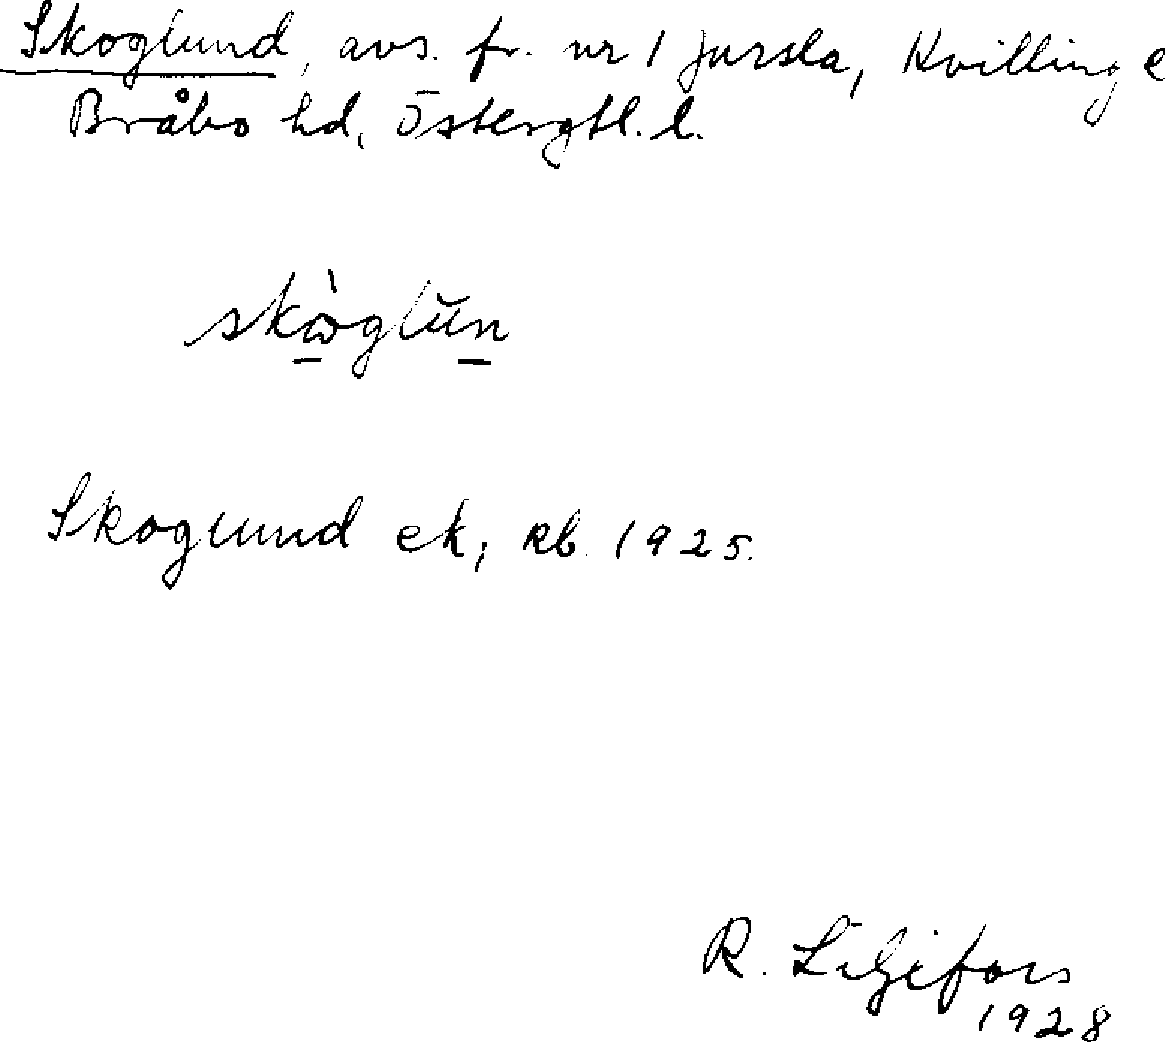 Skoglund, avs. fr. nr 1 Jursla, Kvillinge
Bråbo hd, Östergtl. l.
skòglŭn
Skoglund ek, kb 1925.
R. Liljefors
1928